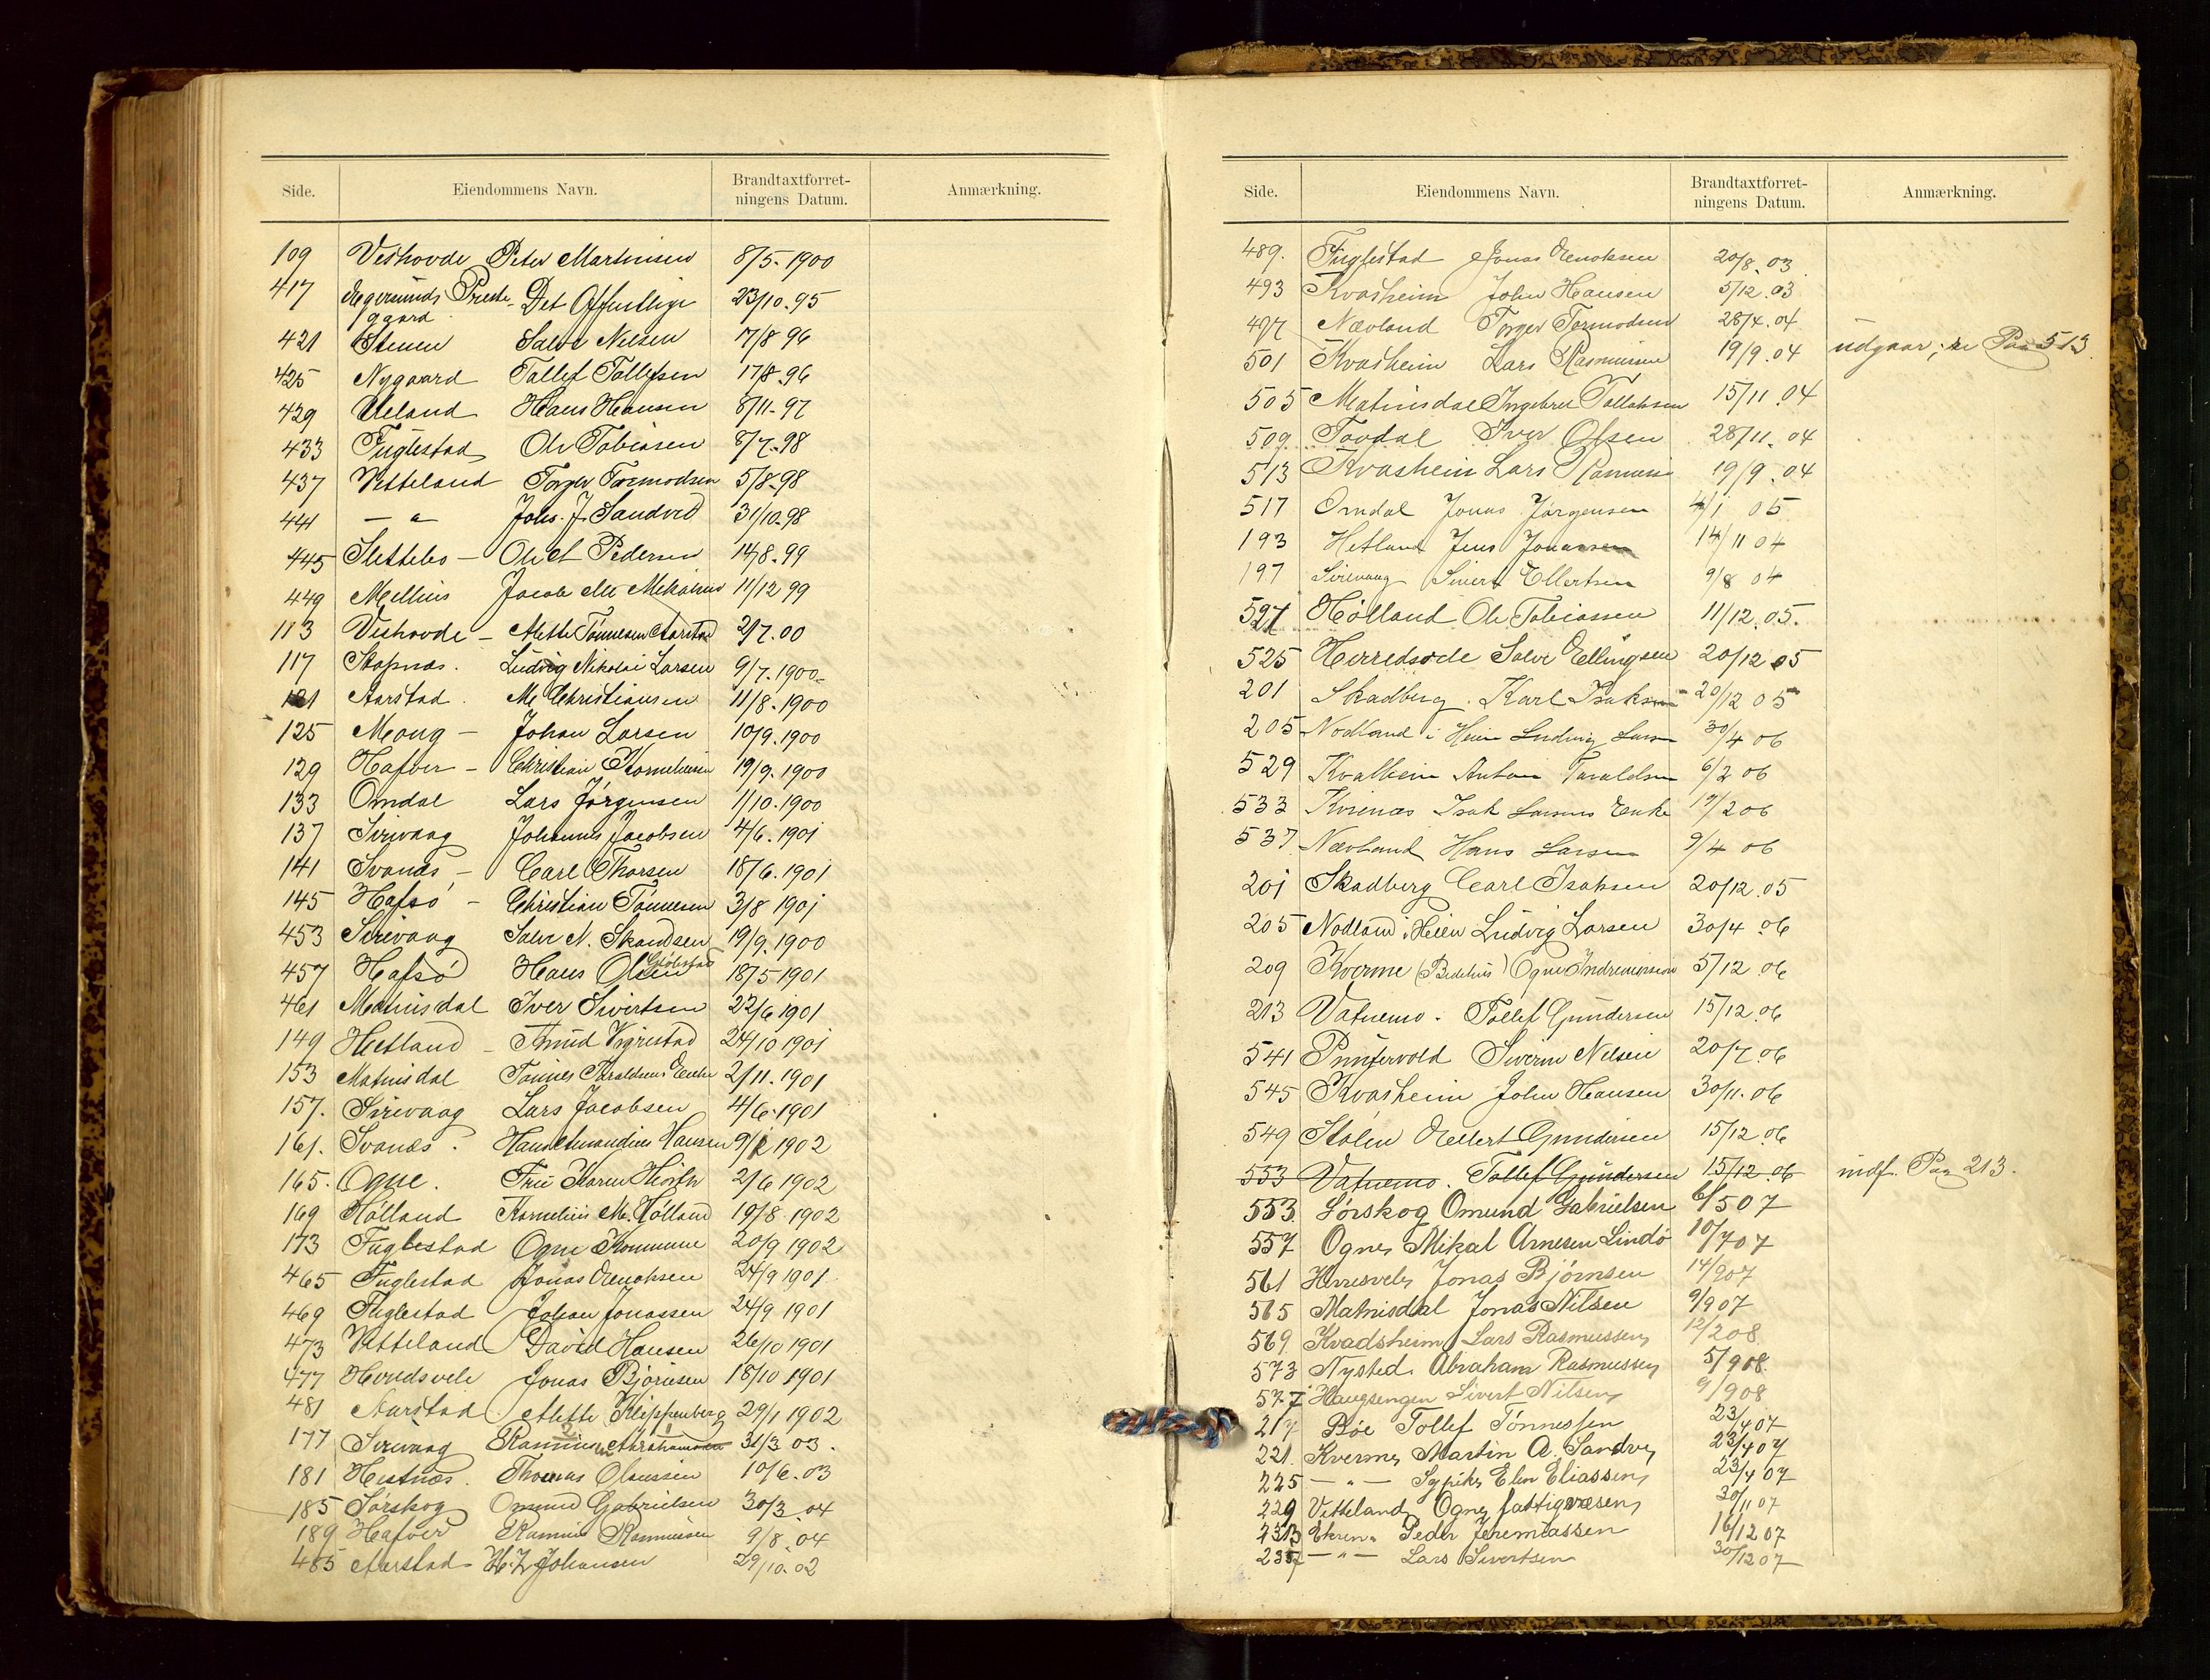 Side. Eiendommens Navn. Brandtaxtforret-ningens Datum. Anmærkning.
109 Veshovde Peter Martinsen 8/5-1900
417 Egersunds Preste-ggaard Det Offentlige 23/10-95
421 Stenen Salve Nelsen 7/8 96
425 Nygaard Tollef Tollefsen 17/8-96
429 Ueland Hans Hansen 8/11-97
433 Fuglestad Ole Tobiasen 8/7-98
437 Vetteland Torger Tormodsen 5/8-98
441 — " — Johs. J. Sandved 31/10-98
445 Slettebo — Ole A Pedersen 14/8-99
449 Mellius Jacob 11/12 99
113 Veshovde — Mette Tønnesen Aarstad 2/7.00
117 Stapnæs. Ludvig Nikolai Larsen 9/7.1900
121 Aarstad. M. Christiansen 11/8-1900
125 Mong — Johan Larsen 10/9.1900
129 Hafver — Christian Korneliusen 19/9.1900
133 Omdal Lars Jørgensen 1/10-1900
137 Sirivaag Johannes Jacobsen 4/6.1901
141 Svanæs — Carl Thorsen 18/6.1901
145 Hafsö — Christian Tönnesen 3/8 1901
453 Sirevaag Salve N. Skandsen 19/9.1900
457 Hafsö Hans Olsen 18/5 1901
461 Matnisdal Iver Sivertsen 22/6 1901
149 Hetland — Vigrestad 24/10 1901
153 Matnisdal Tönnes Taraldsens Enke 2/11.1901
157. Sirevaag Lars Jacobsen 4/6-1901
161. Svanæs. Hansen 9/ 1902
165. Ogne. Fru Karen Hiorth 2/6 1902
169 Hölland Kornelius M. Hölland 19/8 1902
173 Fuglestad Ogne Kommune 20/9 1902
465 Fuglestad Jonas Enoksen 24/9 1901
469 Fuglestad Johan Jonassen 24/9 1901
473 Vetteland David Hansen 26/10 1901
477 Herredsvele Jonas Björnsen 18/10 1901
481 Aarstad Mette Kleppenberg 29/1 1902
177 Sirivaag Rasmus Abrahamsen 31/3 03.
181 Hestnæs. Thomas Olaussen 10/6.03
185 Sörskog Omund Gabrielsen 30/3.04
189 Hafver Rasmus Rasmussen 9/8.04
485 Aarstad H. Z. Johansen 29/10.02
Side. Eiendommens Navn. Brandtaxtforret-ningens Datum. Anmærkning.
489. Fuglestad Jonas Enoksen 20/8.03
493 Kvasheim John Hansen 5/12.03
497 Nævland Torger Tormodsen 28/4.04
501 Kvasheim Lars Rasmussen 19/9.04 udgaar; se Pag 513.
505 Matnisdal Ingebret Tollaksen 15/11.04
509. Tovdal Iver Olsen 28/11.04
513 Kvashein Lars Rasmussen 19/9.04
517 Omdal Jonas Jørgensen 4/1 05
193 Hetland Jens Jonassen 14/11 04
197 Sirevaag Sivert Ellertsen 9/8 04
521 Hölland Ole Tobiassen 11/12.05.
525 Herredsvele Salve Ellingsen 20/12 05
201 Skadberg. Karl Isaksen 20/12 05
205 Nodland i Heien Ludvig Larsen 30/4 06
529 Kvalhein Anton Taraldsen 6/2 06
533 Isak Larsens Enke 17/2 06
537 Nævland Hans Larsen 9/4 06
201 Skadberg Carl Isaksen 20/12.05
205 Nodland i Heien Ludvig Larsen 30/4.06
209 Kverme (Bedehus) Ogne Indremission 5/12.06
213 Vatnemo. Tollef Gundersen 15/12.06
541 Puntervold Severin Nilsen 20/7.06
545 Kvasheim John Hansen 30/11.06
549 Stölen Ellert Gundersen 15/12.06
553 Vatnemo. Tollef Gundersen 15/12.06 indf. Pag 213.
553 Sørskog Omund Gabrielsen 6/5 07
557 Ogne Mikal Arnesen Lindö 10/7 07
561 Herresvele Jonas Bjørnsen 14/9 07
565 Matnisdal Jonas Nilsen 9/9 07
569. Kvadsheim Lars Rasmussen 12/2 08
573 Nysted Abraham Rasmussen 5/9 08.
577 Haugsengen Sivert Nilsen 9/9 08
217 Bøe Tollef Tønnessen 23/4 07
221. Kverme Martin A. Sandve 23/4 07
225 — " — Sypike Elen Eliassen 23/4 07
229 Vetteland Ogne fattigvæsen 30/11 07
233 Ekren Peder Jeremiassen 16/12 07
237 — " — Lars Sivertsen 30/12 07